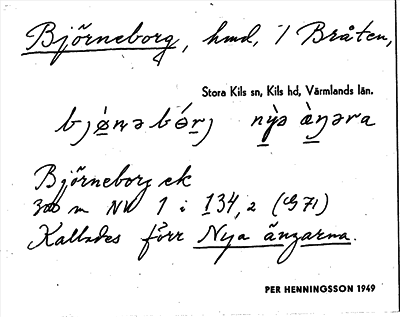 Björneborg, hmd, i Bråten,
Stora Kils sn, Kils hd, Värmlands län.
bjø̀ṇə bórj nỳə æ̀ŋəra
Björneborg ek
300 m NV 1 i 134,2 (G 71)
Kallades förr Nya ängarna.
PER HENNINGSSON 1949